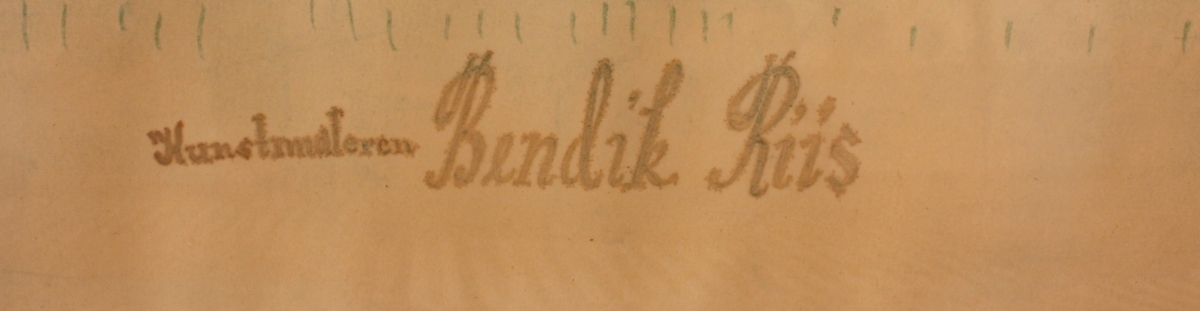 Kunstmaleren Bendik Riis